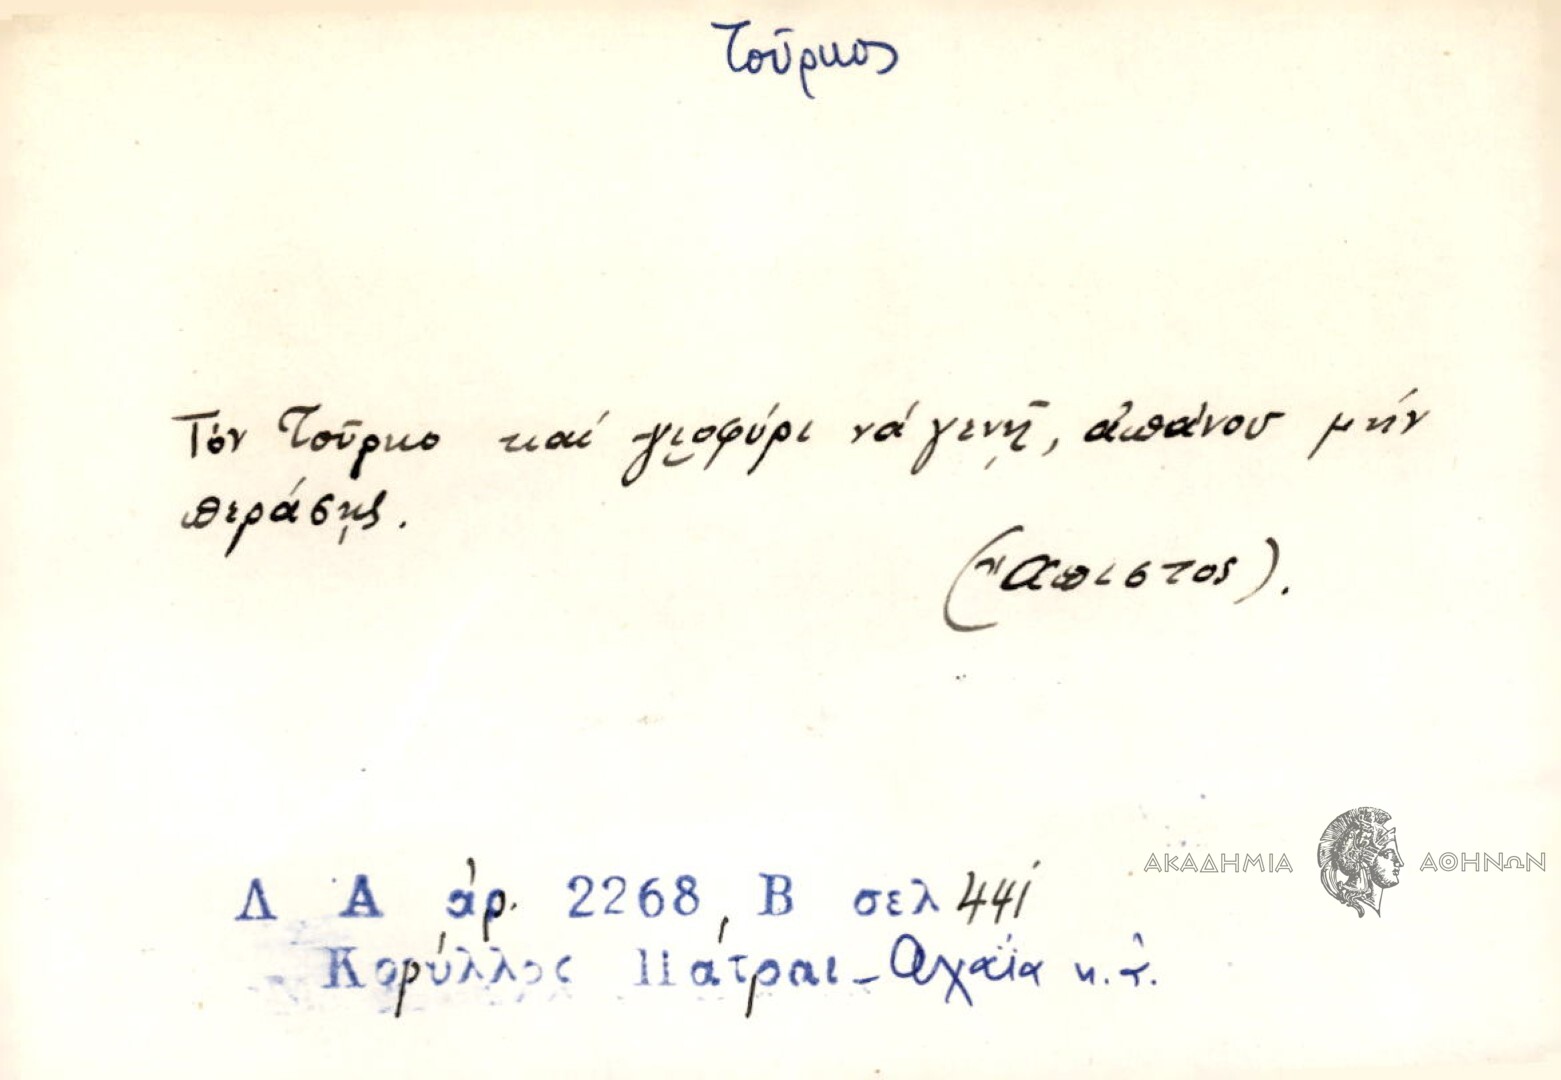 Τοῦρκος
Τόν Τοῦρκο καί γιοφύρι νά γενῇ, ἀπάνου μήν
περάσῃς.
(Ἄπιστος).
Λ Α ἀρ. 2268, Β σελ 441
Κορύλλος Πάτραι - Ἀχαΐα κ.τ.
ΑΚΑΔΗΜΙΑ ΑΘΗΝΩΝ